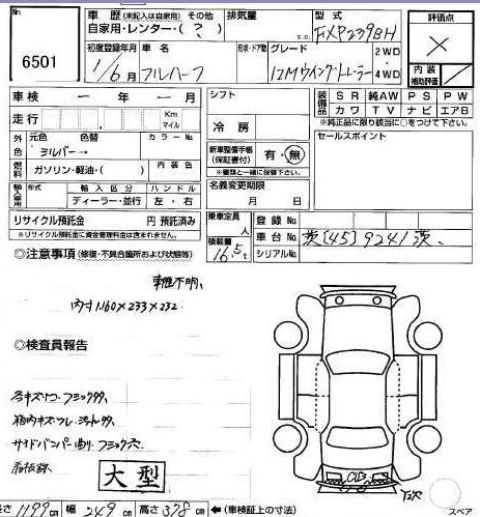 No.
6501
車歴 (未記入は自家用) その他
自家用・レンタ・( ? )
排気量
型式
FXP239BH
評価点
×
初度登録年月
1/6月
車名
フルハーフ
形状・ドア数
グレード
12Mウイングトレーラー
2WD
4WD
内装
補助評価
車検 一 年 一 月
走行
Km
マイル
外色
元色
色替
カラーNo.
シルバー →
燃料
ガソリン・軽油・( )
内装色
輸入車
年式
輸入区分
ハンドル
ディーラー・並行
左・右
リサイクル預託金 円 預託済み
※リサイクル預託金に資金管理料金は含まれません。
シフト
冷房
新車整備手帳
(保証書付)
有・無
※書類と一緒に保管下さい。
名義変更期限
月 日
乗車定員
人
積載量
16.5t
装備品
SR 純AW PS PW
カワ TV ナビ エアB
※純正品に限り該当に○をつけて下さい。
セールスポイント
登録No.
車台No.
茨[45]9241茨
シリアルNo.
◎注意事項 (修復・不具合箇所および状態等)
車歴不明、
内寸1160×233×232
◎検査員報告
各キズ凹
サイドバンパー曲り
看板跡
大型
長さ 1199 cm 幅 249 cm 高さ 378 cm ←(車検証上の寸法)
スペア